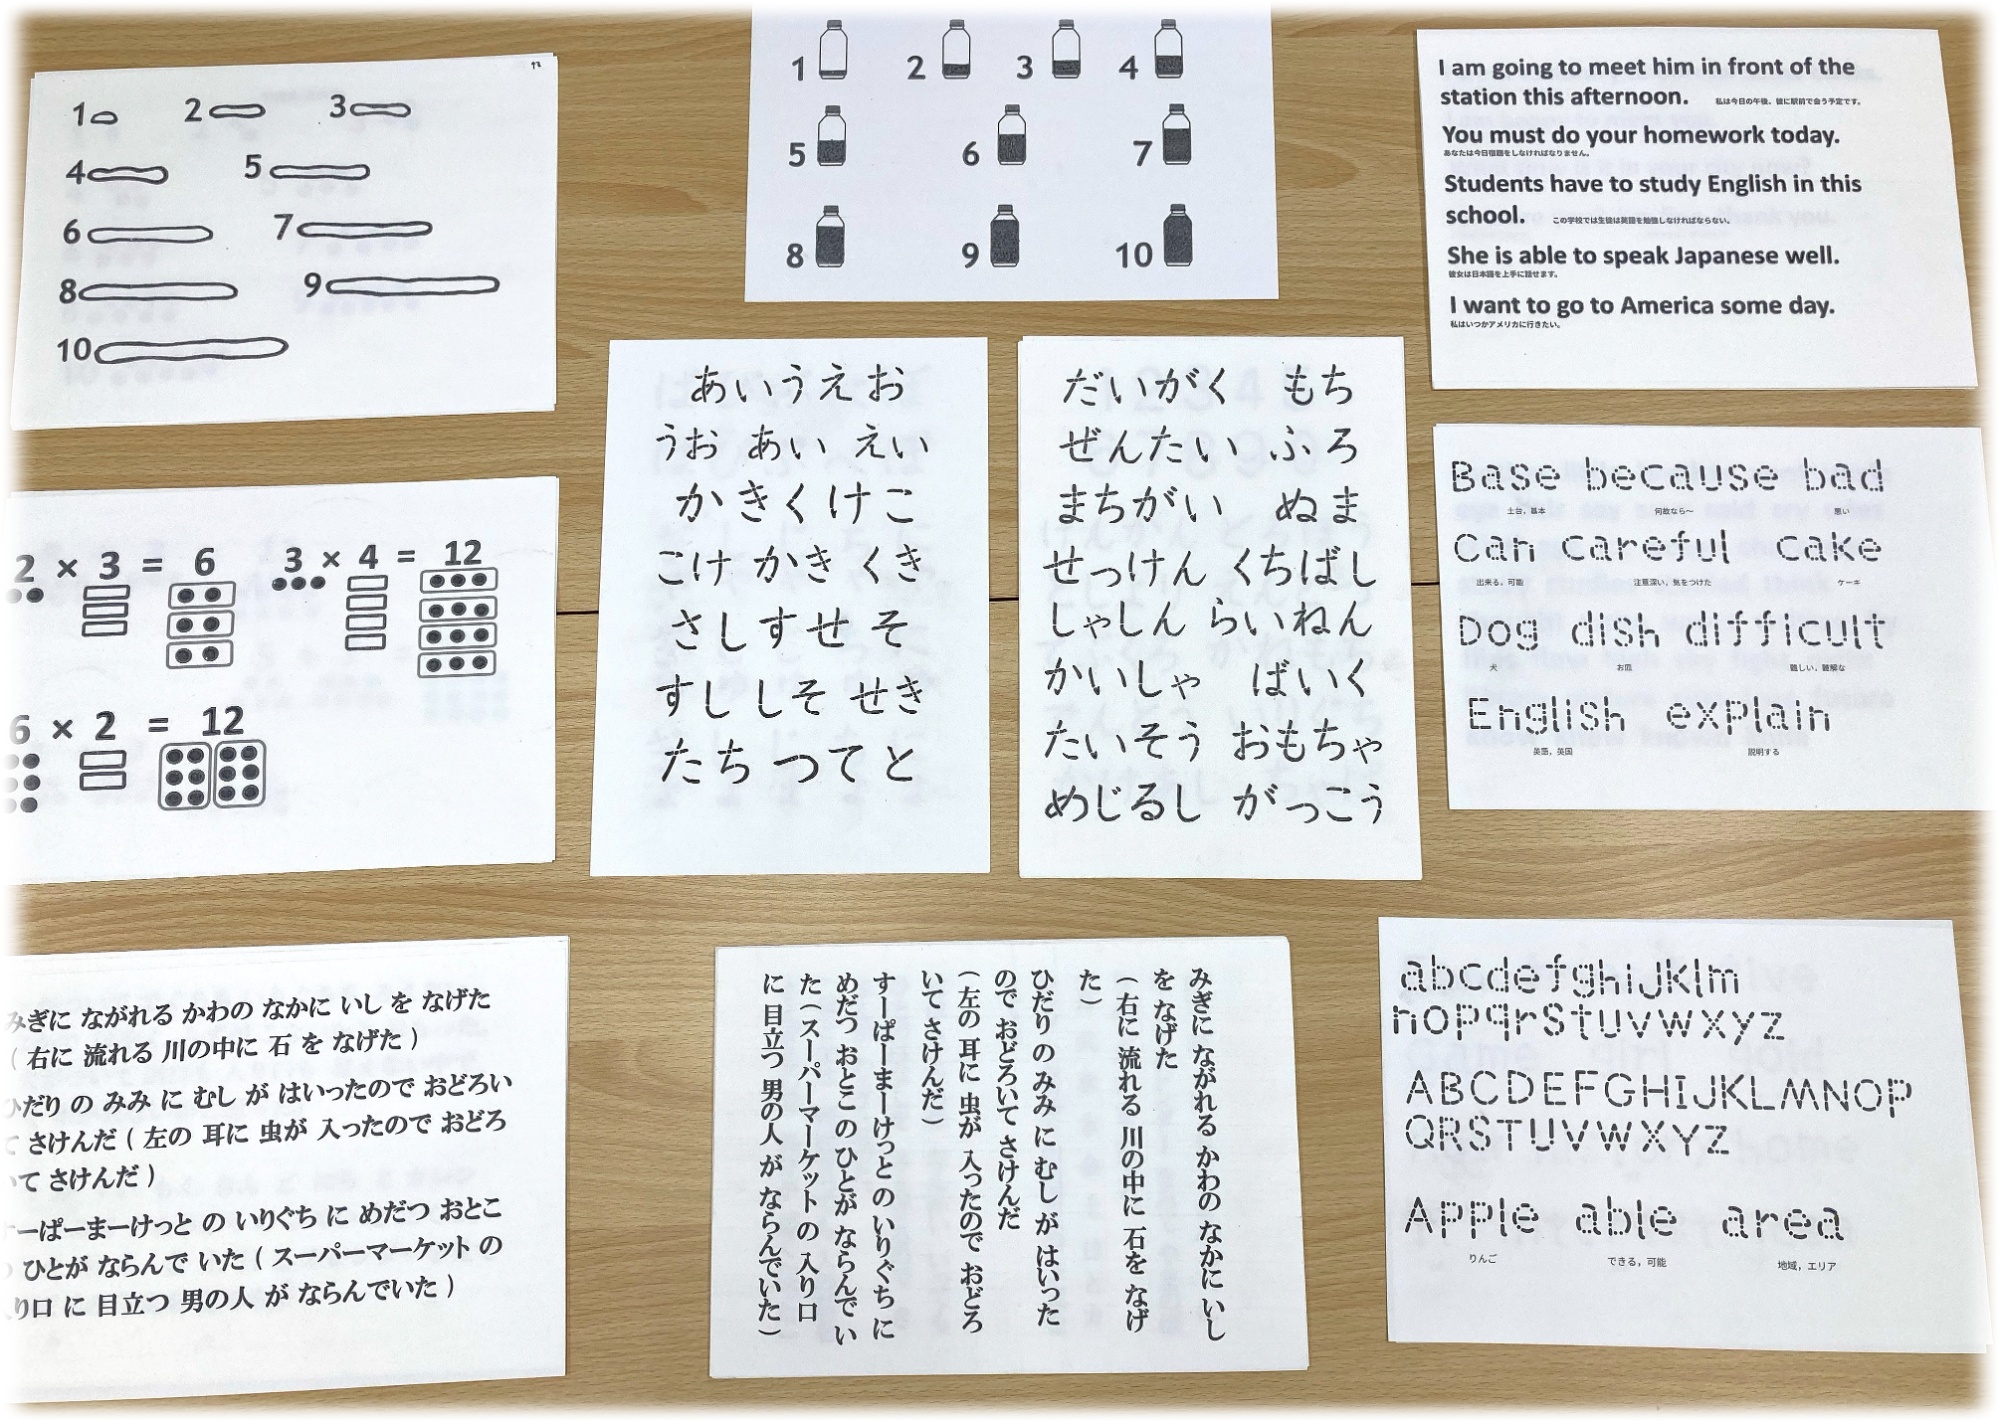 1 2 3
4 5
6 7
8 9
10
1 2 3 4
5 6 7
8 9 10
I am going to meet him in front of the
station this afternoon. 私は今日の午後、彼に駅前で会う予定です。
You must do your homework today.
あなたは今日宿題をしなければなりません。
Students have to study English in this
school. この学校では生徒は英語を勉強しなければならない。
She is able to speak Japanese well.
彼女は日本語を上手に話せます。
I want to go to America some day.
私はいつかアメリカに行きたい。
2 × 3 = 6 3 × 4 = 12
6 × 2 = 12
あいうえお
うお あい えい
かきくけこ
こけ かき くき
さしすせそ
すし しそ せき
たちつてと
だいがく もち
ぜんたい ふろ
まちがい ぬま
せっけん くちばし
しゃしん らいねん
かいしゃ ばいく
たいそう おもちゃ
めじるし がっこう
Base because bad
土台，基本 何故なら～ 悪い
Can careful cake
出来る，可能 注意深い，気をつけた ケーキ
Dog dish difficult
犬 お皿 難しい，難解な
English explain
英語，英国 説明する
みぎに ながれる かわの なかに いし を なげた
( 右に 流れる 川の中に 石 を なげた )
ひだり の みみ に むし が はいったので おどろい
て さけんだ ( 左の 耳に 虫が 入ったので おどろ
いて さけんだ )
すーぱーまーけっと の いりぐち に めだつ おとこ
の ひとが ならんで いた ( スーパーマーケット の
入り口 に 目立つ 男の人 が ならんでいた )
みぎに ながれる かわの なかに いし
を なげた
( 右に 流れる 川の中に 石を なげ
た )
ひだり の みみ に むし が はいった
ので おどろいて さけんだ
( 左の 耳に 虫が 入ったので おどろ
いて さけんだ )
すーぱーまーけっと の いりぐち に
めだつ おとこ の ひとが ならんで い
た ( スーパーマーケット の 入り口
に 目立つ 男の人 が ならんでいた )
abcdefghijklm
nopqrstuvwxyz
ABCDEFGHIJKLMNOP
QRSTUVWXYZ
Apple able area
りんご できる，可能 地域，エリア